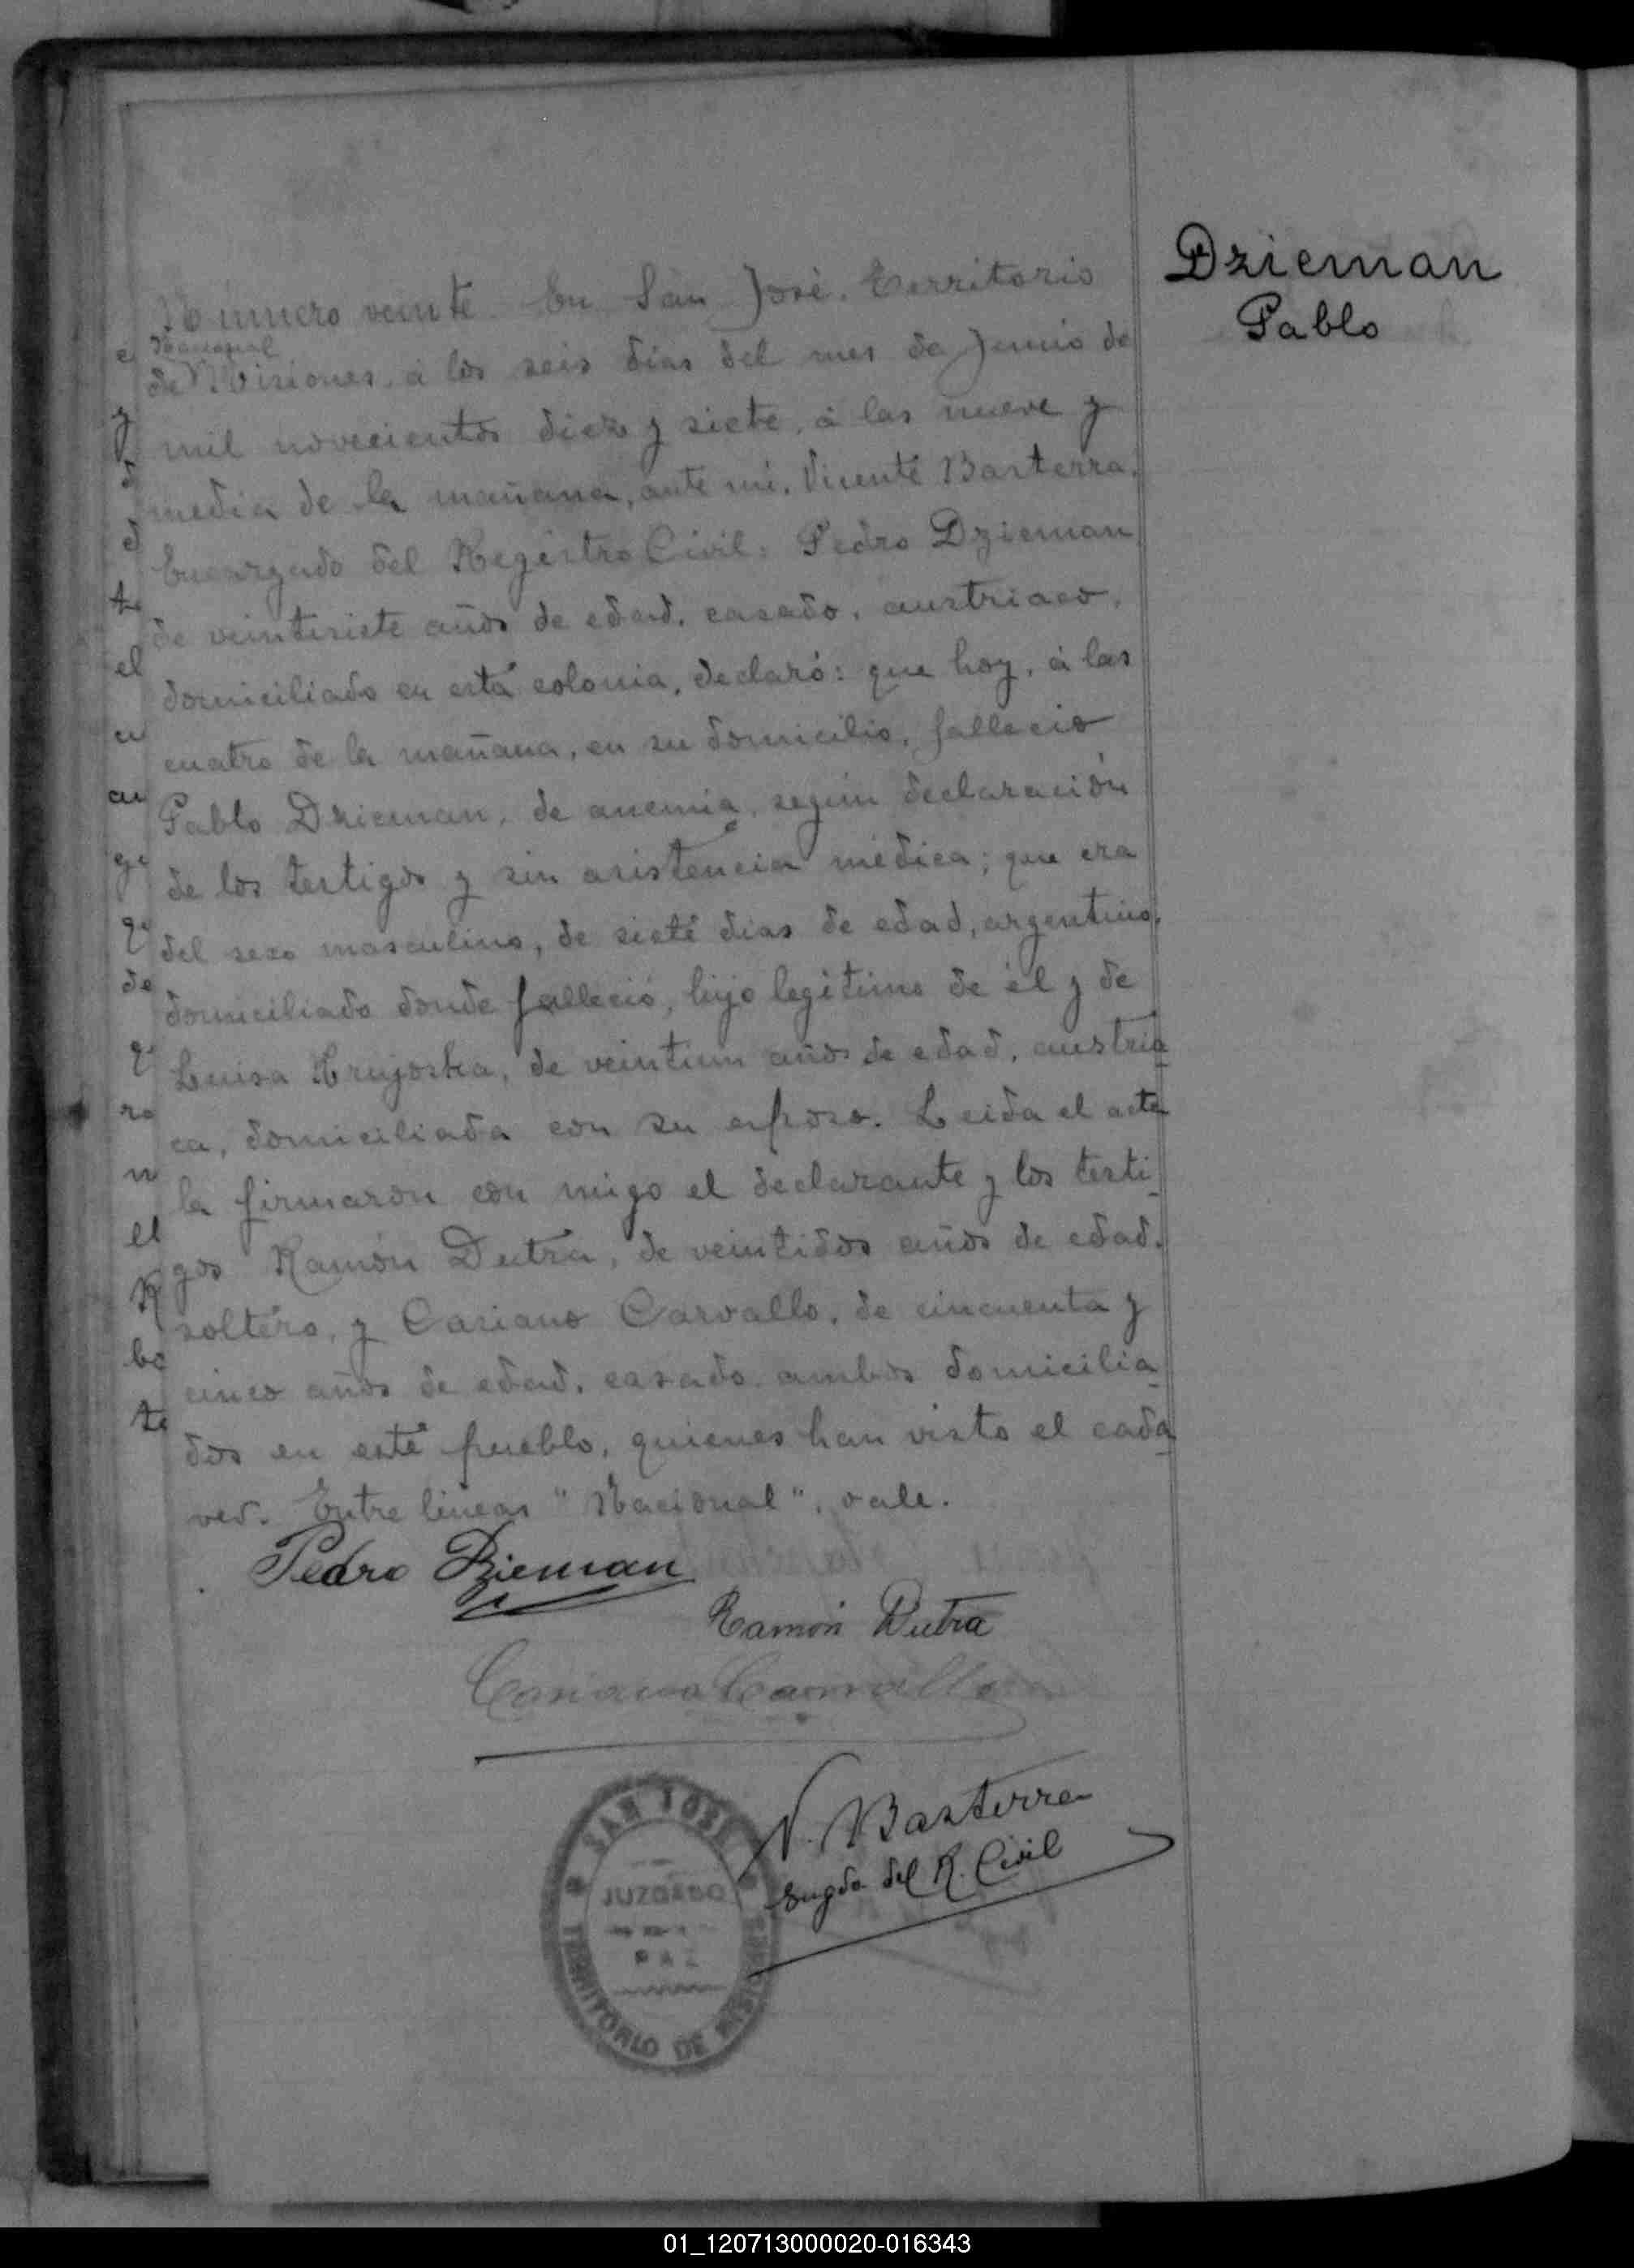 Drieman
Pablo
Número veinte. En San José, Territorio
Nacional
de Misiones, á los seis dias del mes de Junio de
mil novecientos diez y siete, á las nueve y
media de la mañana, ante mi, Vicente Basterra,
Encargado del Registro Civil: Pedro Dzieman
de veintisiete años de edad, casado, austriaco,
domiciliado en esta colonia, declaró: que hoy, á las
cuatro de la mañana, en su domicilio, falleció
Pablo Drieman, de anemia, según declaración
de los testigos y sin asistencia médica; que era
del sexo masculino, de siete dias de edad, argentino,
domiciliado donde falleció, hijo legitimo de él y de
Luisa de veintiun años de edad, austria
ca, domiciliada con su esposo. Leida el acta
la firmaron con migo el declarante y los testi
gos Ramón Dutra, de veintidos años de edad,
soltero, y Casiano Carvallo, de cincuenta y
cinco años de edad, casado, ambos domicilia
dos en este pueblo, quienes han visto el cada
ver. Entre lineas "Nacional", vale.
Pedro Dzieman
Ramón Dutra
Casiano Carvallo
V. Basterra
Engdo del R. Civil
SAN JOSE
JUZGADO
DE
PAZ
TERRITORIO DE MISIONES
01_120713000020-016343